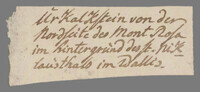 Urkalkstein von der
Nordseite des Mont Rosa
im Hintergrund des St. Nik
lausthals im Wallis.